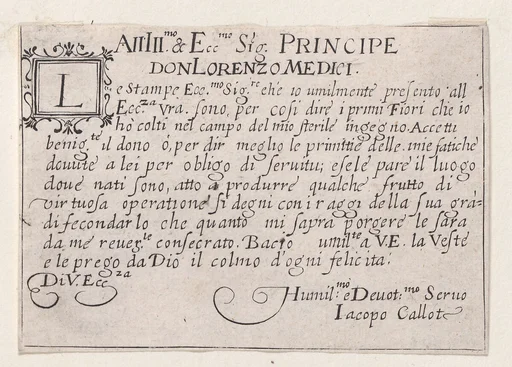 All Ill.mo & Ecc.mo Sig. PRINCIPE
DON LORENZO MEDICI.
Le Stampe Ecc.mo Sig.re che io umilmente presento all
Ecc.za Vra. sono, per cosi dire i primi Fiori che io
ho colti nel campo del mio sterile ingegno. Accetti
benig.te il dono ò, per dir meglio le primitie delle mie fatiche
douute a lei per obligo di seruitu; e se le pare il luogo
doue nati sono, atto a produrre qualche frutto di
virtuosa operatione si degni con i raggi della sua gra-
di fecondarlo che quanto mi sapra porgere le sara
da me reuer.te consecrato. Bacio umil.te a V.E. la Veste
e le prego da Dio il colmo d'ogni felicita.
Di V. Ecc.za
Humil.mo e Deuot.mo Seruo
Iacopo Callot